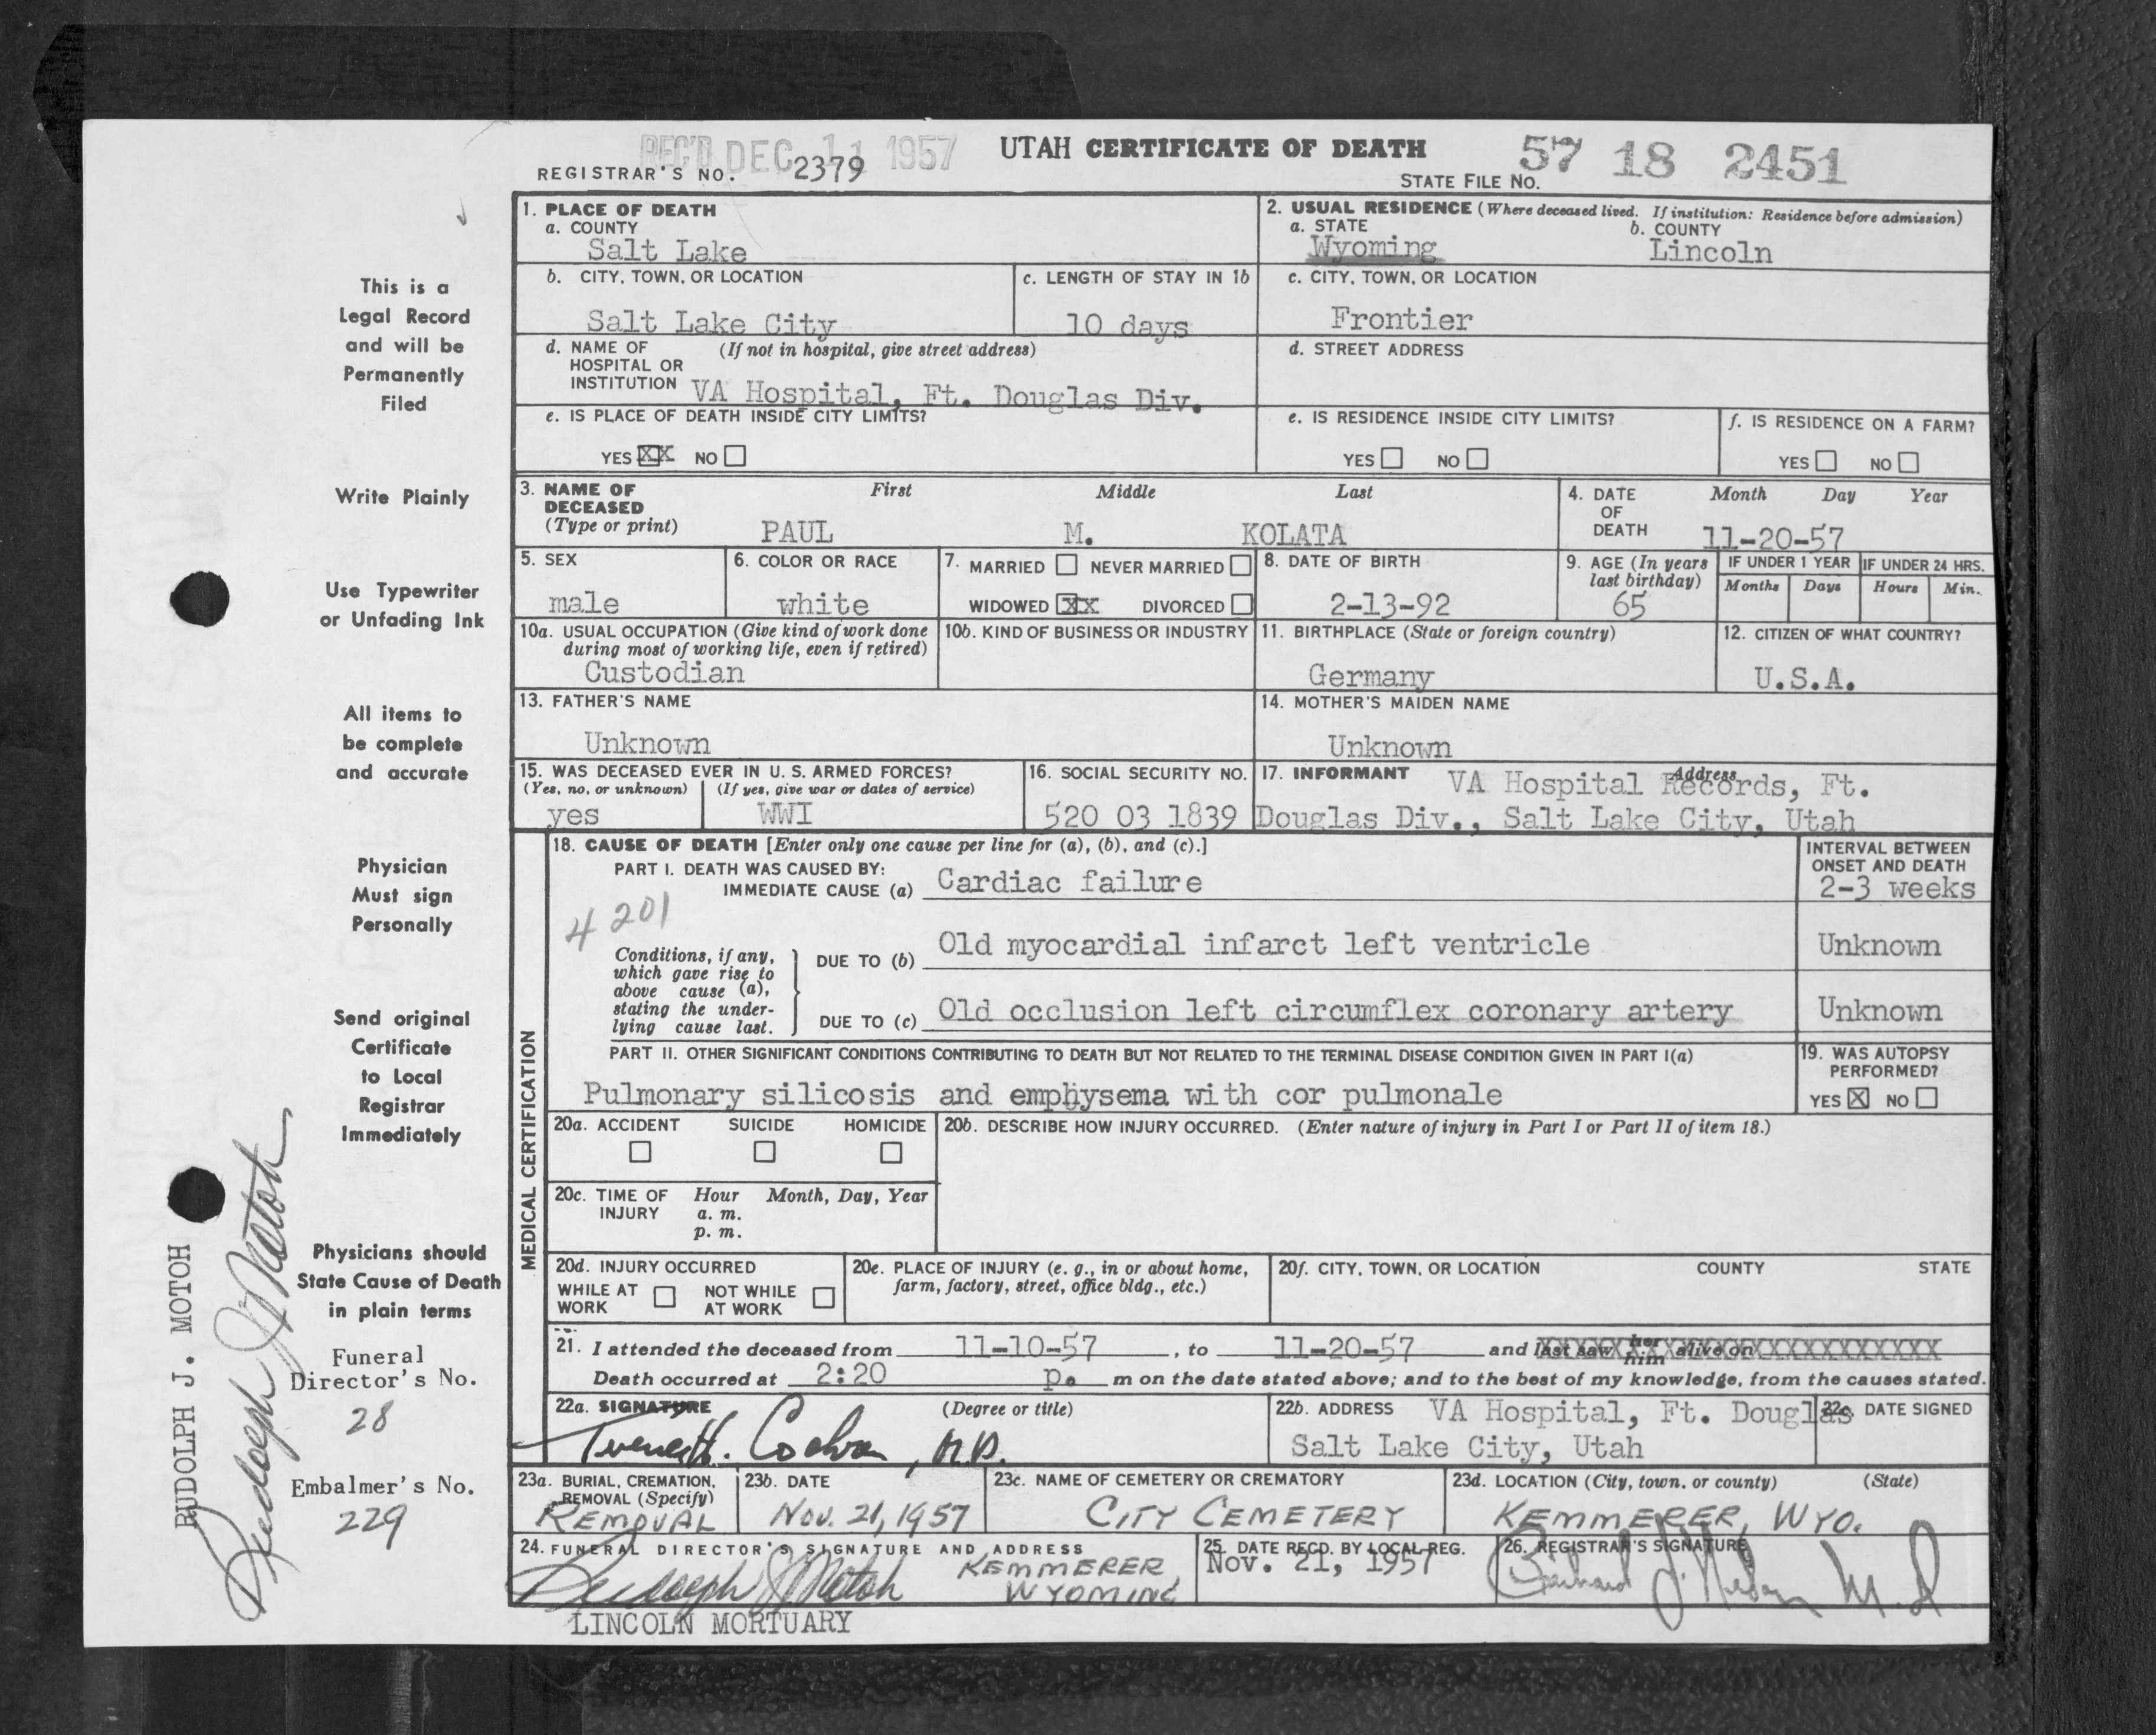 REC'D DEC 11 1957
UTAH CERTIFICATE OF DEATH
57 18 2451
REGISTRAR'S NO. 2379
STATE FILE NO.
1. PLACE OF DEATH
a. COUNTY
Salt Lake
2. USUAL RESIDENCE (Where deceased lived. If institution: Residence before admission)
a. STATE b. COUNTY
Wyoming Lincoln
b. CITY, TOWN, OR LOCATION
Salt Lake City
c. LENGTH OF STAY IN 1b
10 days
c. CITY, TOWN, OR LOCATION
Frontier
d. NAME OF (If not in hospital, give street address)
HOSPITAL OR
INSTITUTION VA Hospital, Ft. Douglas Div.
d. STREET ADDRESS
e. IS PLACE OF DEATH INSIDE CITY LIMITS?
YES XX NO
e. IS RESIDENCE INSIDE CITY LIMITS?
YES NO
f. IS RESIDENCE ON A FARM?
YES NO
3. NAME OF DECEASED (Type or print)
First Middle Last
PAUL M. KOLATA
4. DATE OF DEATH
Month Day Year
11-20-57
5. SEX
male
6. COLOR OR RACE
white
7. MARRIED NEVER MARRIED
WIDOWED XX DIVORCED
8. DATE OF BIRTH
2-13-92
9. AGE (In years last birthday)
65
IF UNDER 1 YEAR
Months Days
IF UNDER 24 HRS.
Hours Min.
10a. USUAL OCCUPATION (Give kind of work done
during most of working life, even if retired)
Custodian
10b. KIND OF BUSINESS OR INDUSTRY
11. BIRTHPLACE (State or foreign country)
Germany
12. CITIZEN OF WHAT COUNTRY?
U.S.A.
13. FATHER'S NAME
Unknown
14. MOTHER'S MAIDEN NAME
Unknown
15. WAS DECEASED EVER IN U. S. ARMED FORCES?
(Yes, no, or unknown) (If yes, give war or dates of service)
yes WWI
16. SOCIAL SECURITY NO.
520 03 1839
17. INFORMANT Address
VA Hospital Records, Ft.
Douglas Div., Salt Lake City, Utah
MEDICAL CERTIFICATION
18. CAUSE OF DEATH [Enter only one cause per line for (a), (b), and (c).]
INTERVAL BETWEEN
ONSET AND DEATH
PART I. DEATH WAS CAUSED BY:
IMMEDIATE CAUSE (a) Cardiac failure 2-3 weeks
4201
Conditions, if any,
which gave rise to
above cause (a),
stating the under-
lying cause last.
DUE TO (b) Old myocardial infarct left ventricle Unknown
DUE TO (c) Old occlusion left circumflex coronary artery Unknown
PART II. OTHER SIGNIFICANT CONDITIONS CONTRIBUTING TO DEATH BUT NOT RELATED TO THE TERMINAL DISEASE CONDITION GIVEN IN PART I(a)
Pulmonary silicosis and emphysema with cor pulmonale
19. WAS AUTOPSY
PERFORMED?
YES X NO
20a. ACCIDENT SUICIDE HOMICIDE
20b. DESCRIBE HOW INJURY OCCURRED. (Enter nature of injury in Part I or Part II of item 18.)
20c. TIME OF INJURY
Hour Month, Day, Year
a. m.
p. m.
20d. INJURY OCCURRED
WHILE AT WORK NOT WHILE AT WORK
20e. PLACE OF INJURY (e. g., in or about home,
farm, factory, street, office bldg., etc.)
20f. CITY, TOWN, OR LOCATION COUNTY STATE
21. I attended the deceased from 11-10-57, to 11-20-57 and last saw her him alive on
Death occurred at 2:20 p. m on the date stated above; and to the best of my knowledge, from the causes stated.
22a. SIGNATURE (Degree or title)
Cochran, M.D.
22b. ADDRESS VA Hospital, Ft. Douglas
Salt Lake City, Utah
22c. DATE SIGNED
23a. BURIAL, CREMATION,
REMOVAL (Specify)
REMOVAL
23b. DATE
NOV. 21, 1957
23c. NAME OF CEMETERY OR CREMATORY
CITY CEMETERY
23d. LOCATION (City, town, or county) (State)
KEMMERER, WYO.
24. FUNERAL DIRECTOR'S SIGNATURE AND ADDRESS
Rudolph J Motoh KEMMERER,
WYOMING
LINCOLN MORTUARY
25. DATE RECD. BY LOCAL REG.
Nov. 21, 1957
26. REGISTRAR'S SIGNATURE
M.D
This is a
Legal Record
and will be
Permanently
Filed
Write Plainly
Use Typewriter
or Unfading Ink
All items to
be complete
and accurate
Physician
Must sign
Personally
Send original
Certificate
to Local
Registrar
Immediately
Physicians should
State Cause of Death
in plain terms
Funeral
Director's No.
28
Embalmer's No.
229
RUDOLPH J. MOTOH
Rudolph J Motoh